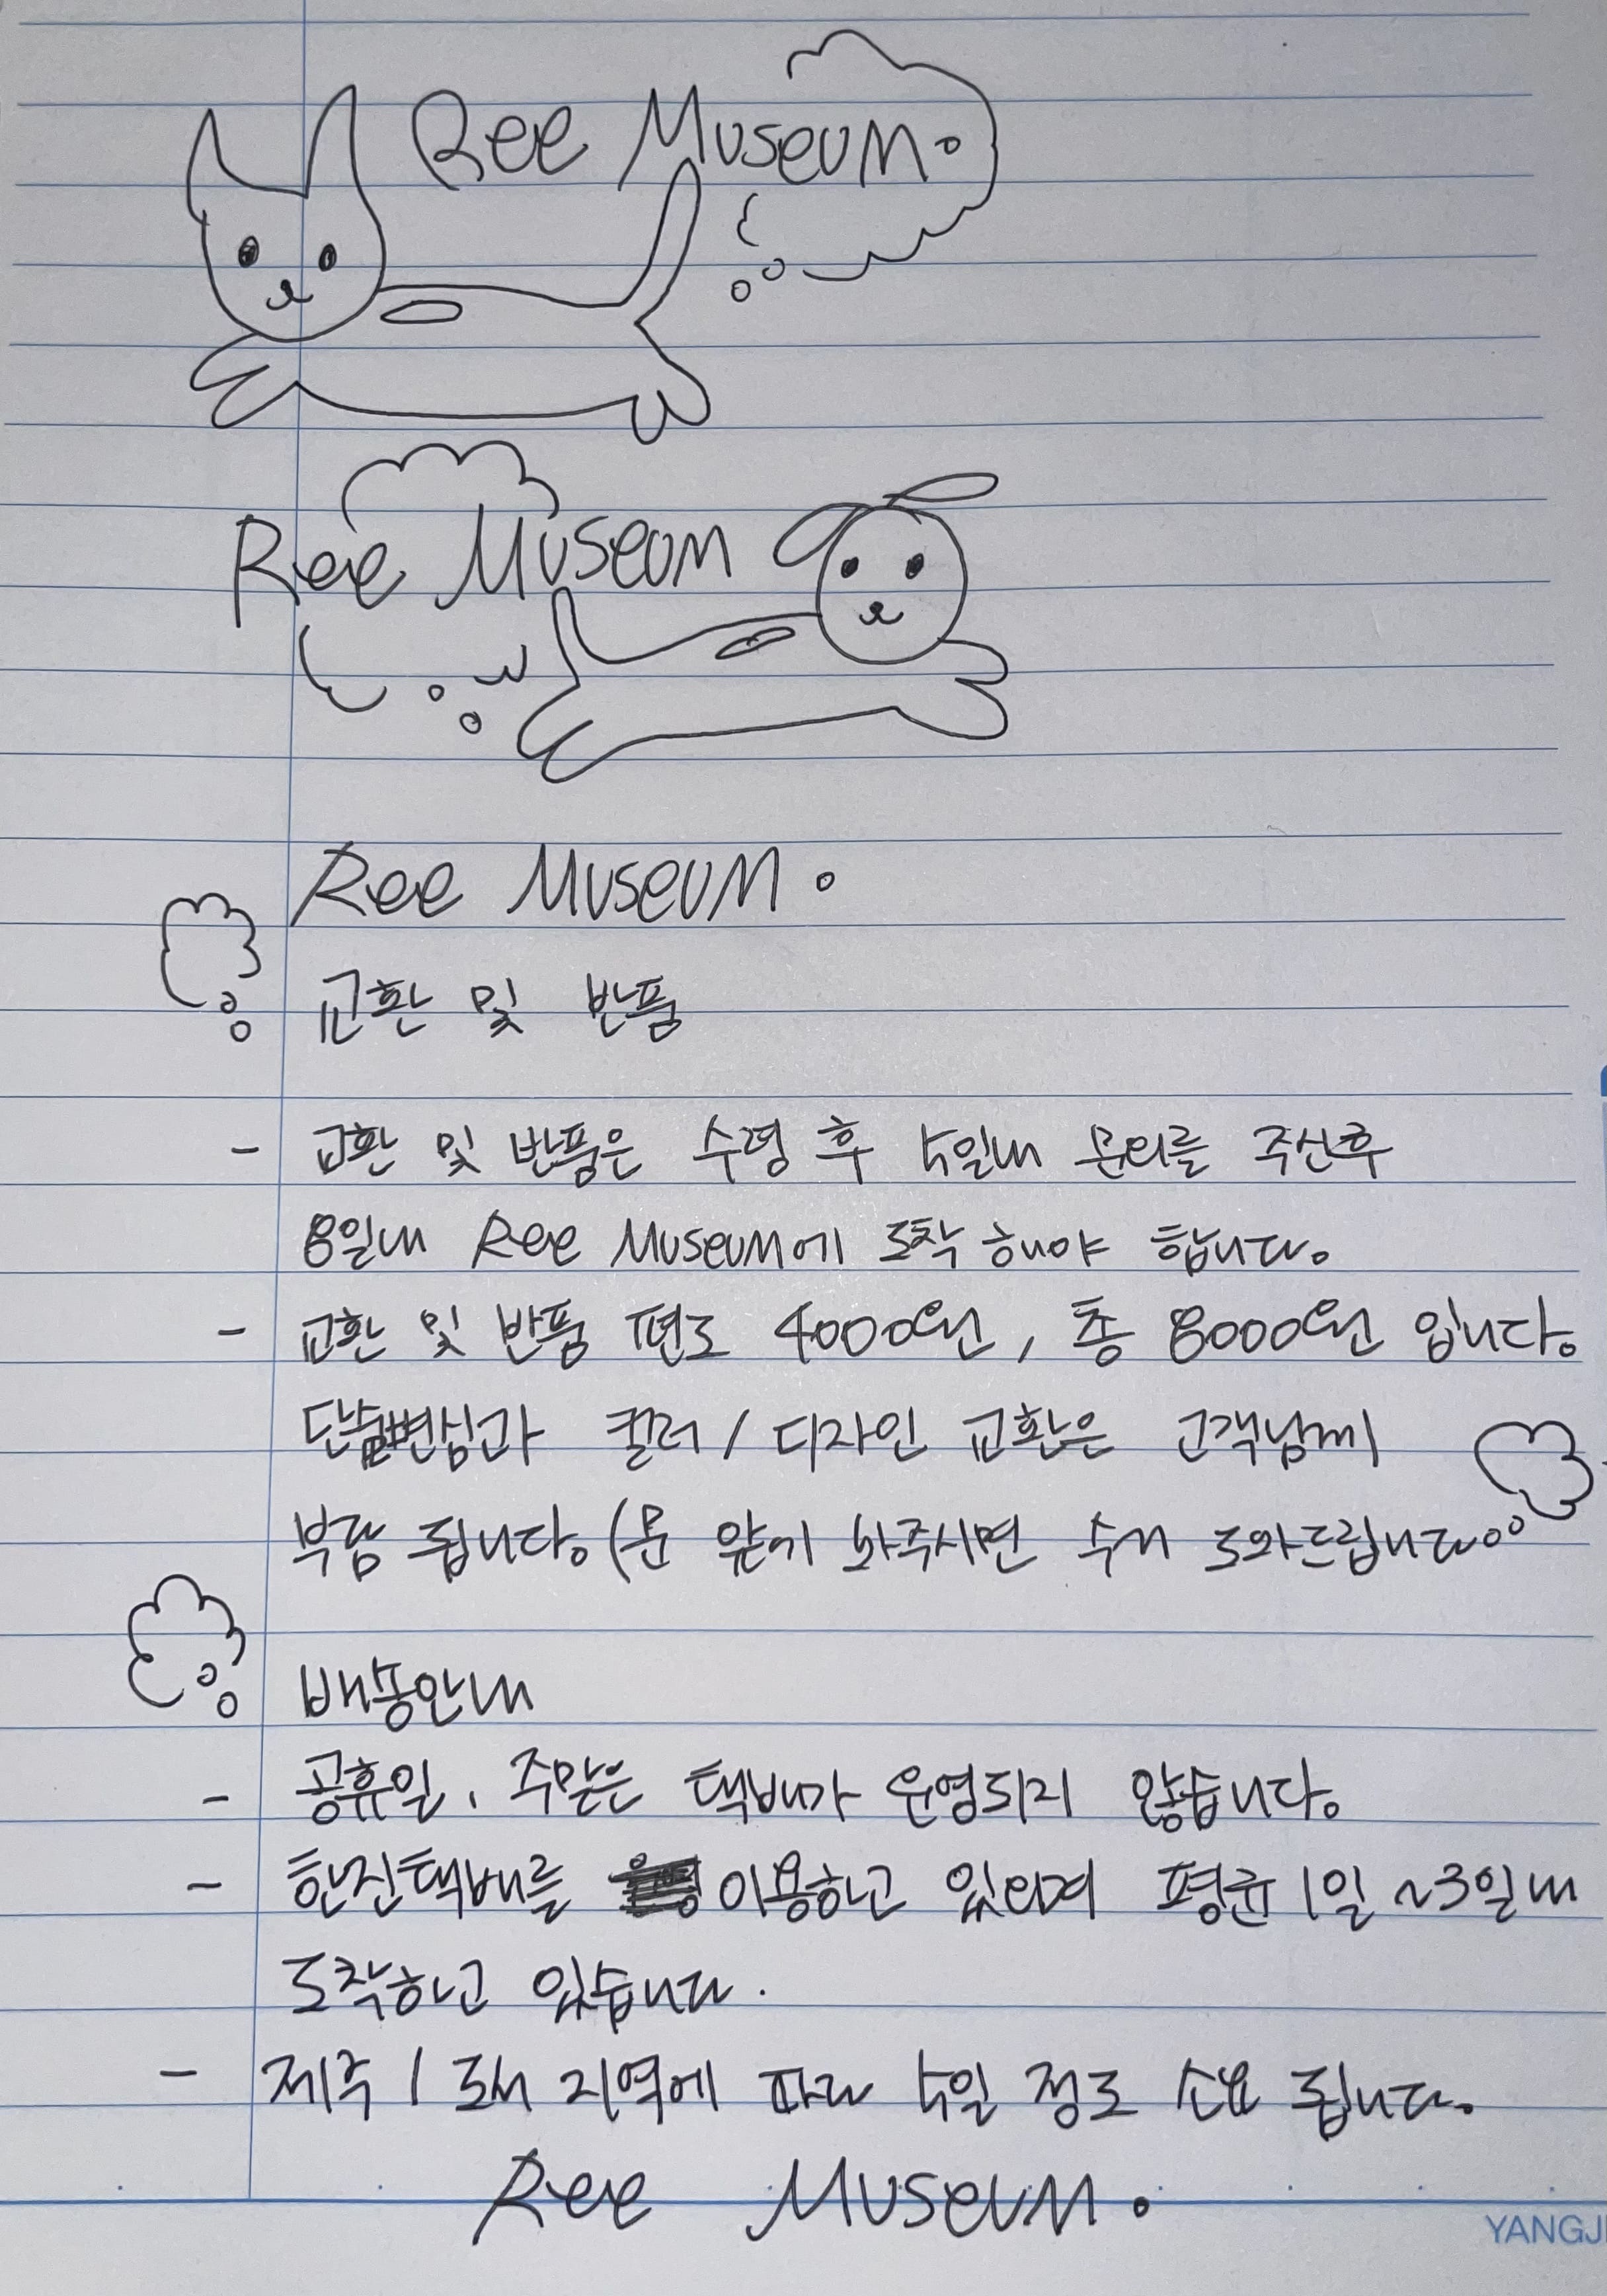 Ree Museum.
Ree Museum
Ree Museum.
교환 및 반품
- 교환 및 반품은 수령 후 5일내 문의를 주신후
8일내 Ree Museum에 도착 해야 합니다.
- 교환 및 반품 편도 4000원, 총 8000원 입니다.
단순변심과 컬러/디자인 교환은 고객님께
부담 됩니다. (문 앞에 놔주시면 수거 도와드립니다.
배송안내
- 공휴일, 주말은 택배가 운영되지 않습니다.
- 한진택배를 이용하고 있으며 평균 1일 ~3일내
도착하고 있습니다.
- 제주/도서 지역에 따라 5일 정도 소요 됩니다.
Ree Museum.